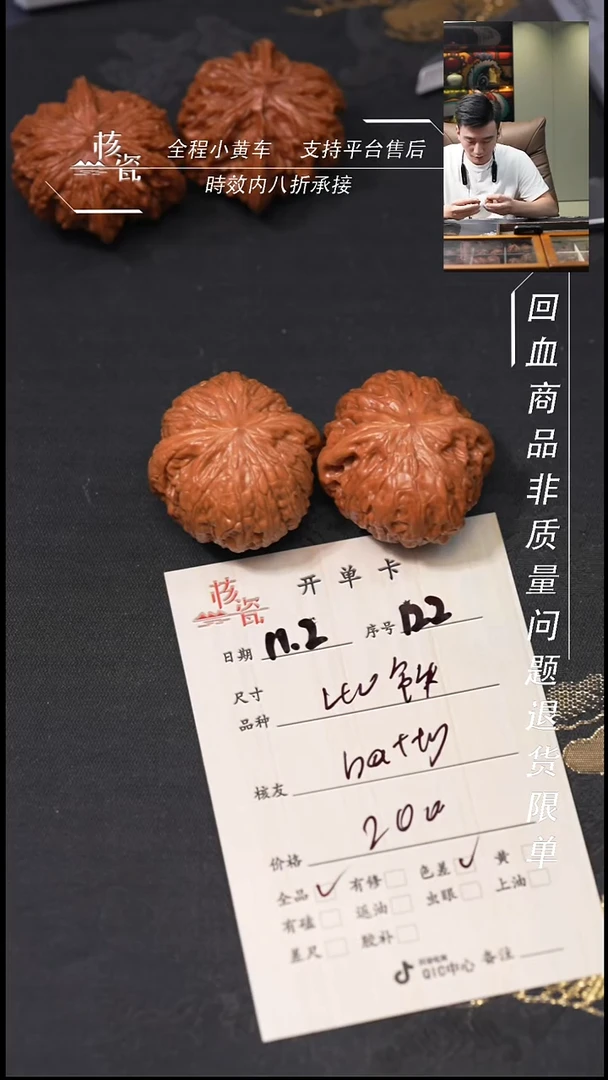 核瓷
全程小黄车 支持平台售后
時效内八折承接
回血商品非质量问题退货限单
核瓷
开单卡
日期 11.2 序号 122
尺寸
品种
核友 hatty
价格 200
全品 ✓ 有修 色差 ✓ 黄
有磕 返油 虫眼 上油
差尺 胶补
QIC中心 备注